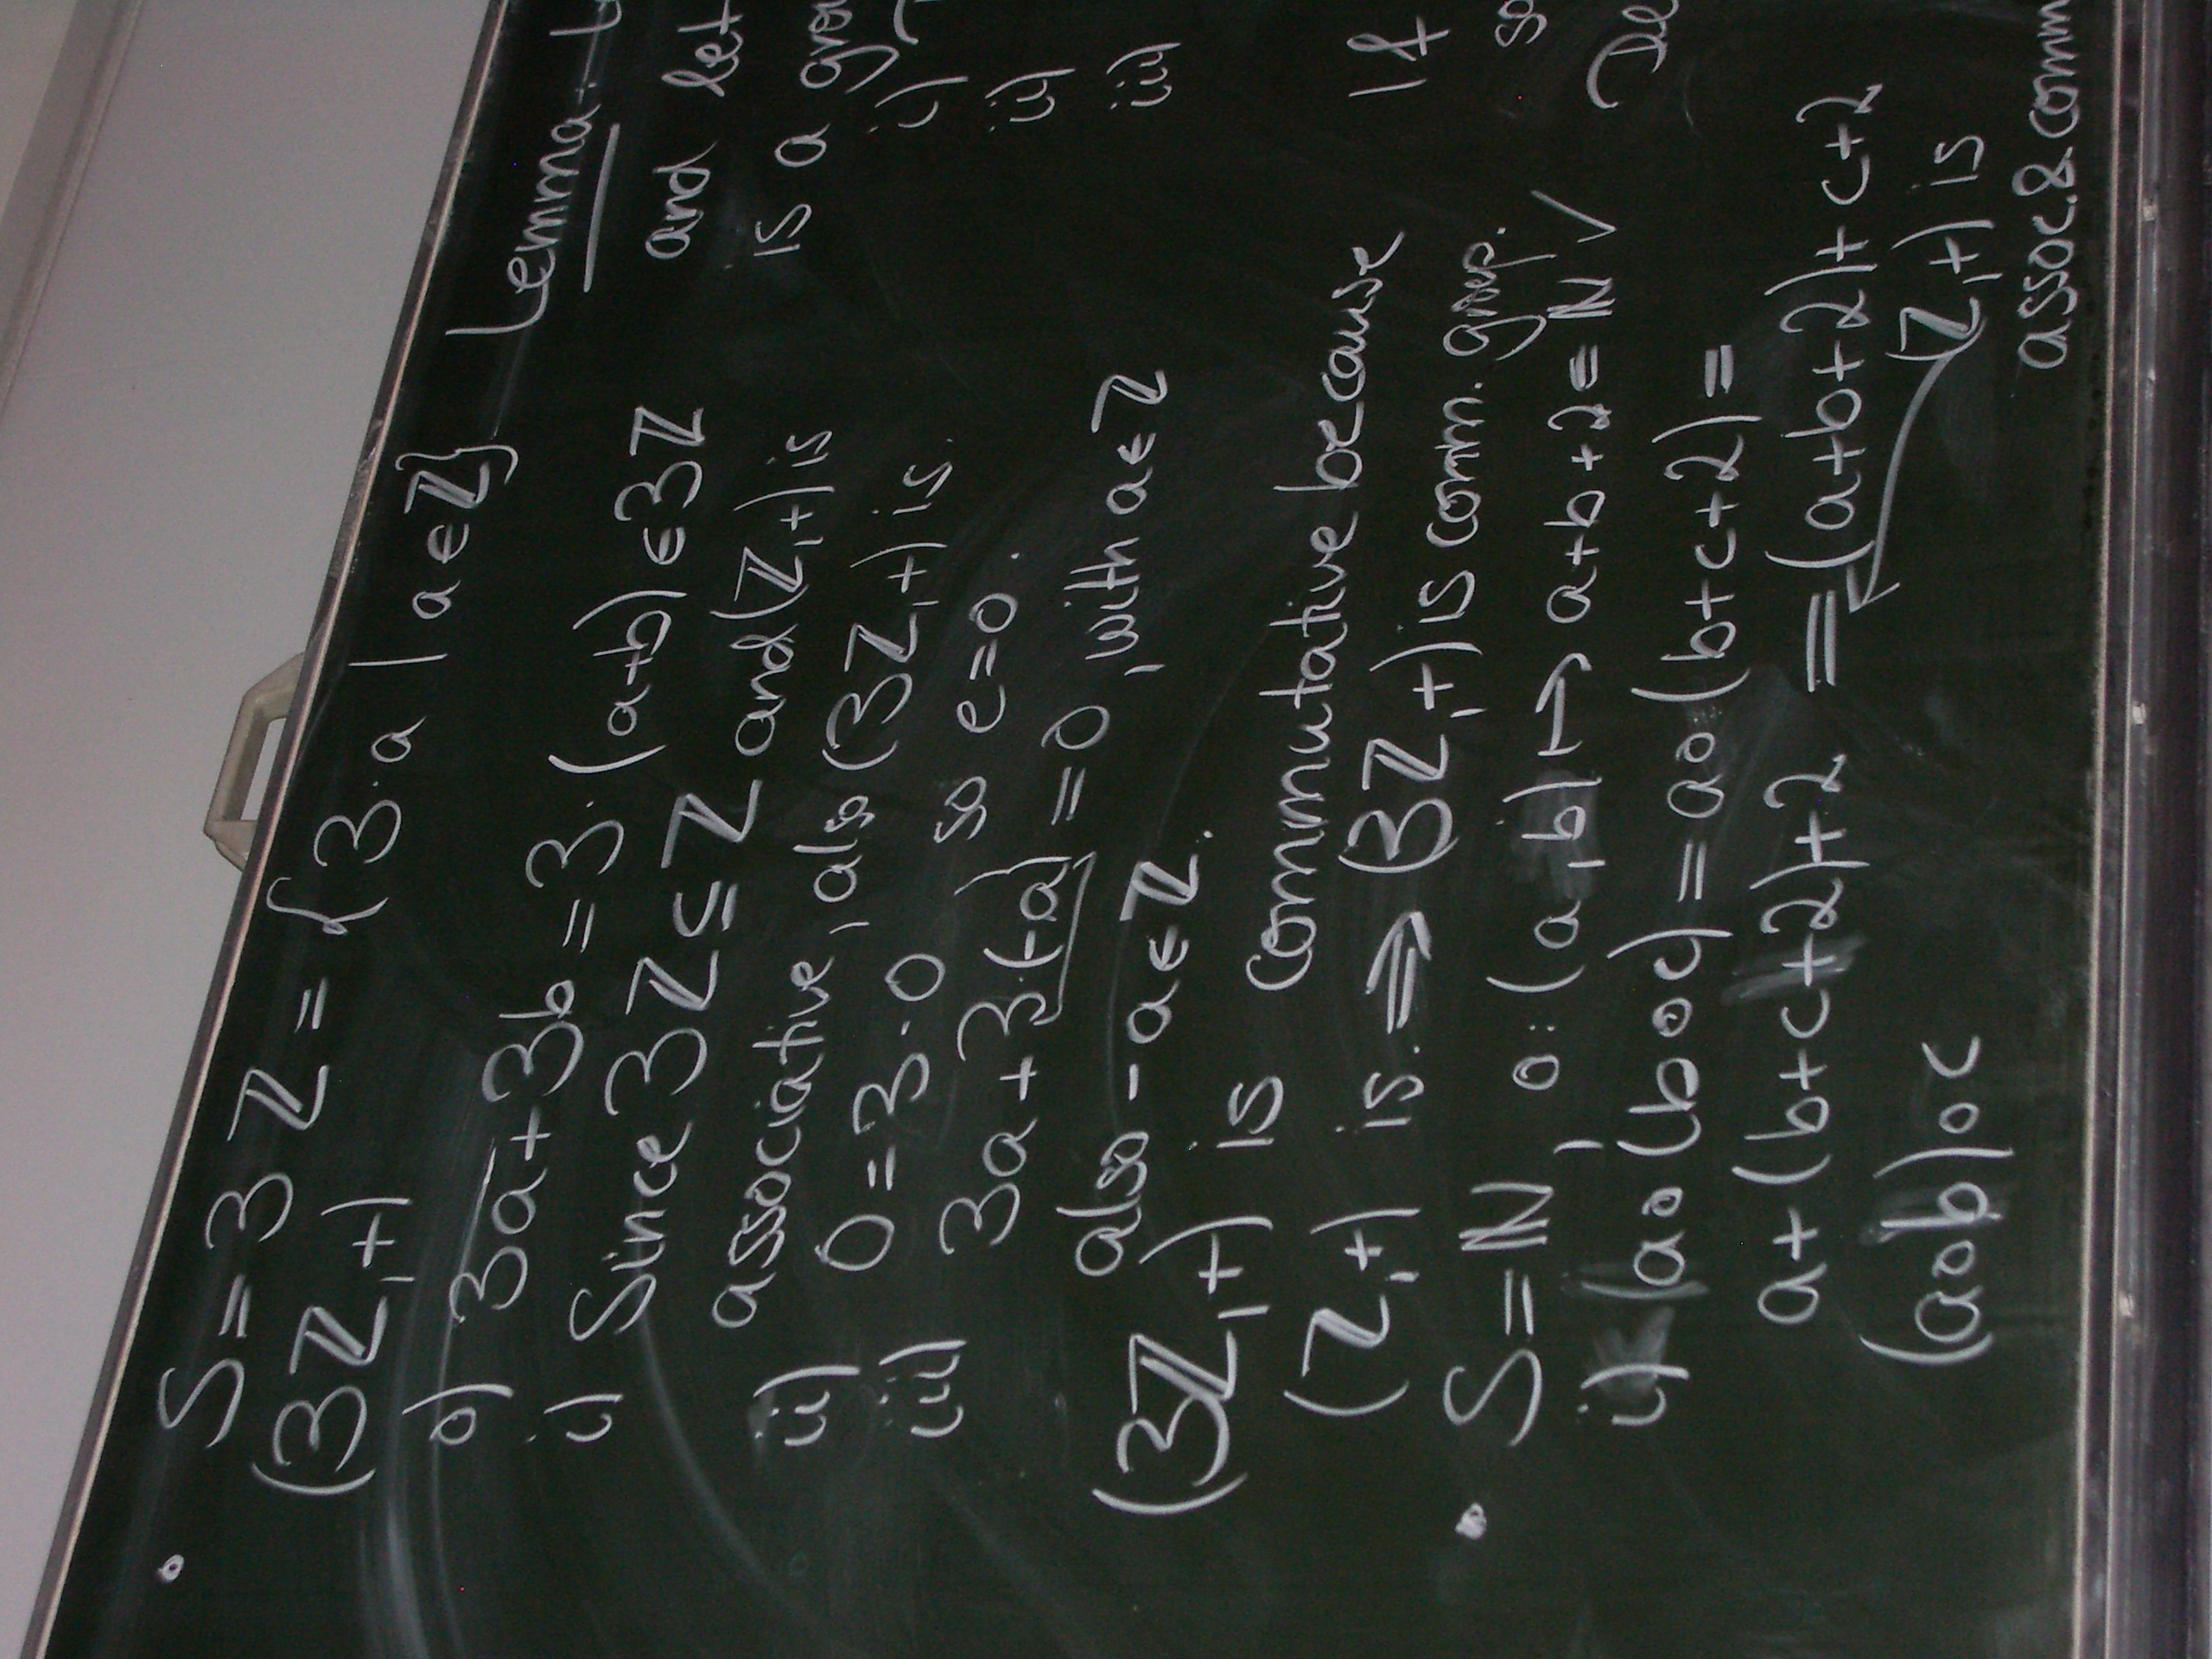 • S = 3ℤ = {3·a | a ∈ ℤ}
(3ℤ,+)
0) 3a + 3b = 3·(a+b) ∈ 3ℤ
i) Since 3ℤ ⊆ ℤ and (ℤ,+) is
associative, also (3ℤ,+) is.
ii) 0 = 3·0 so e=0.
iii) 3a + 3·(-a) = 0, with a ∈ ℤ
also -a ∈ ℤ.
(3ℤ,+) is commutative because
(ℤ,+) is. ⇒ (3ℤ,+) is comm. group.
• S = ℕ, ∘: (a,b) ↦ a+b+2 ∈ ℕ ✓
i) (a∘(b∘c)) = a∘(b+c+2) =
a+(b+c+2)+2 = (a+b+2)+c+2
(a∘b)∘c (ℤ,+) is
assoc. & comm
Lemma:
and let
is a
i)
ii)
iii)
If